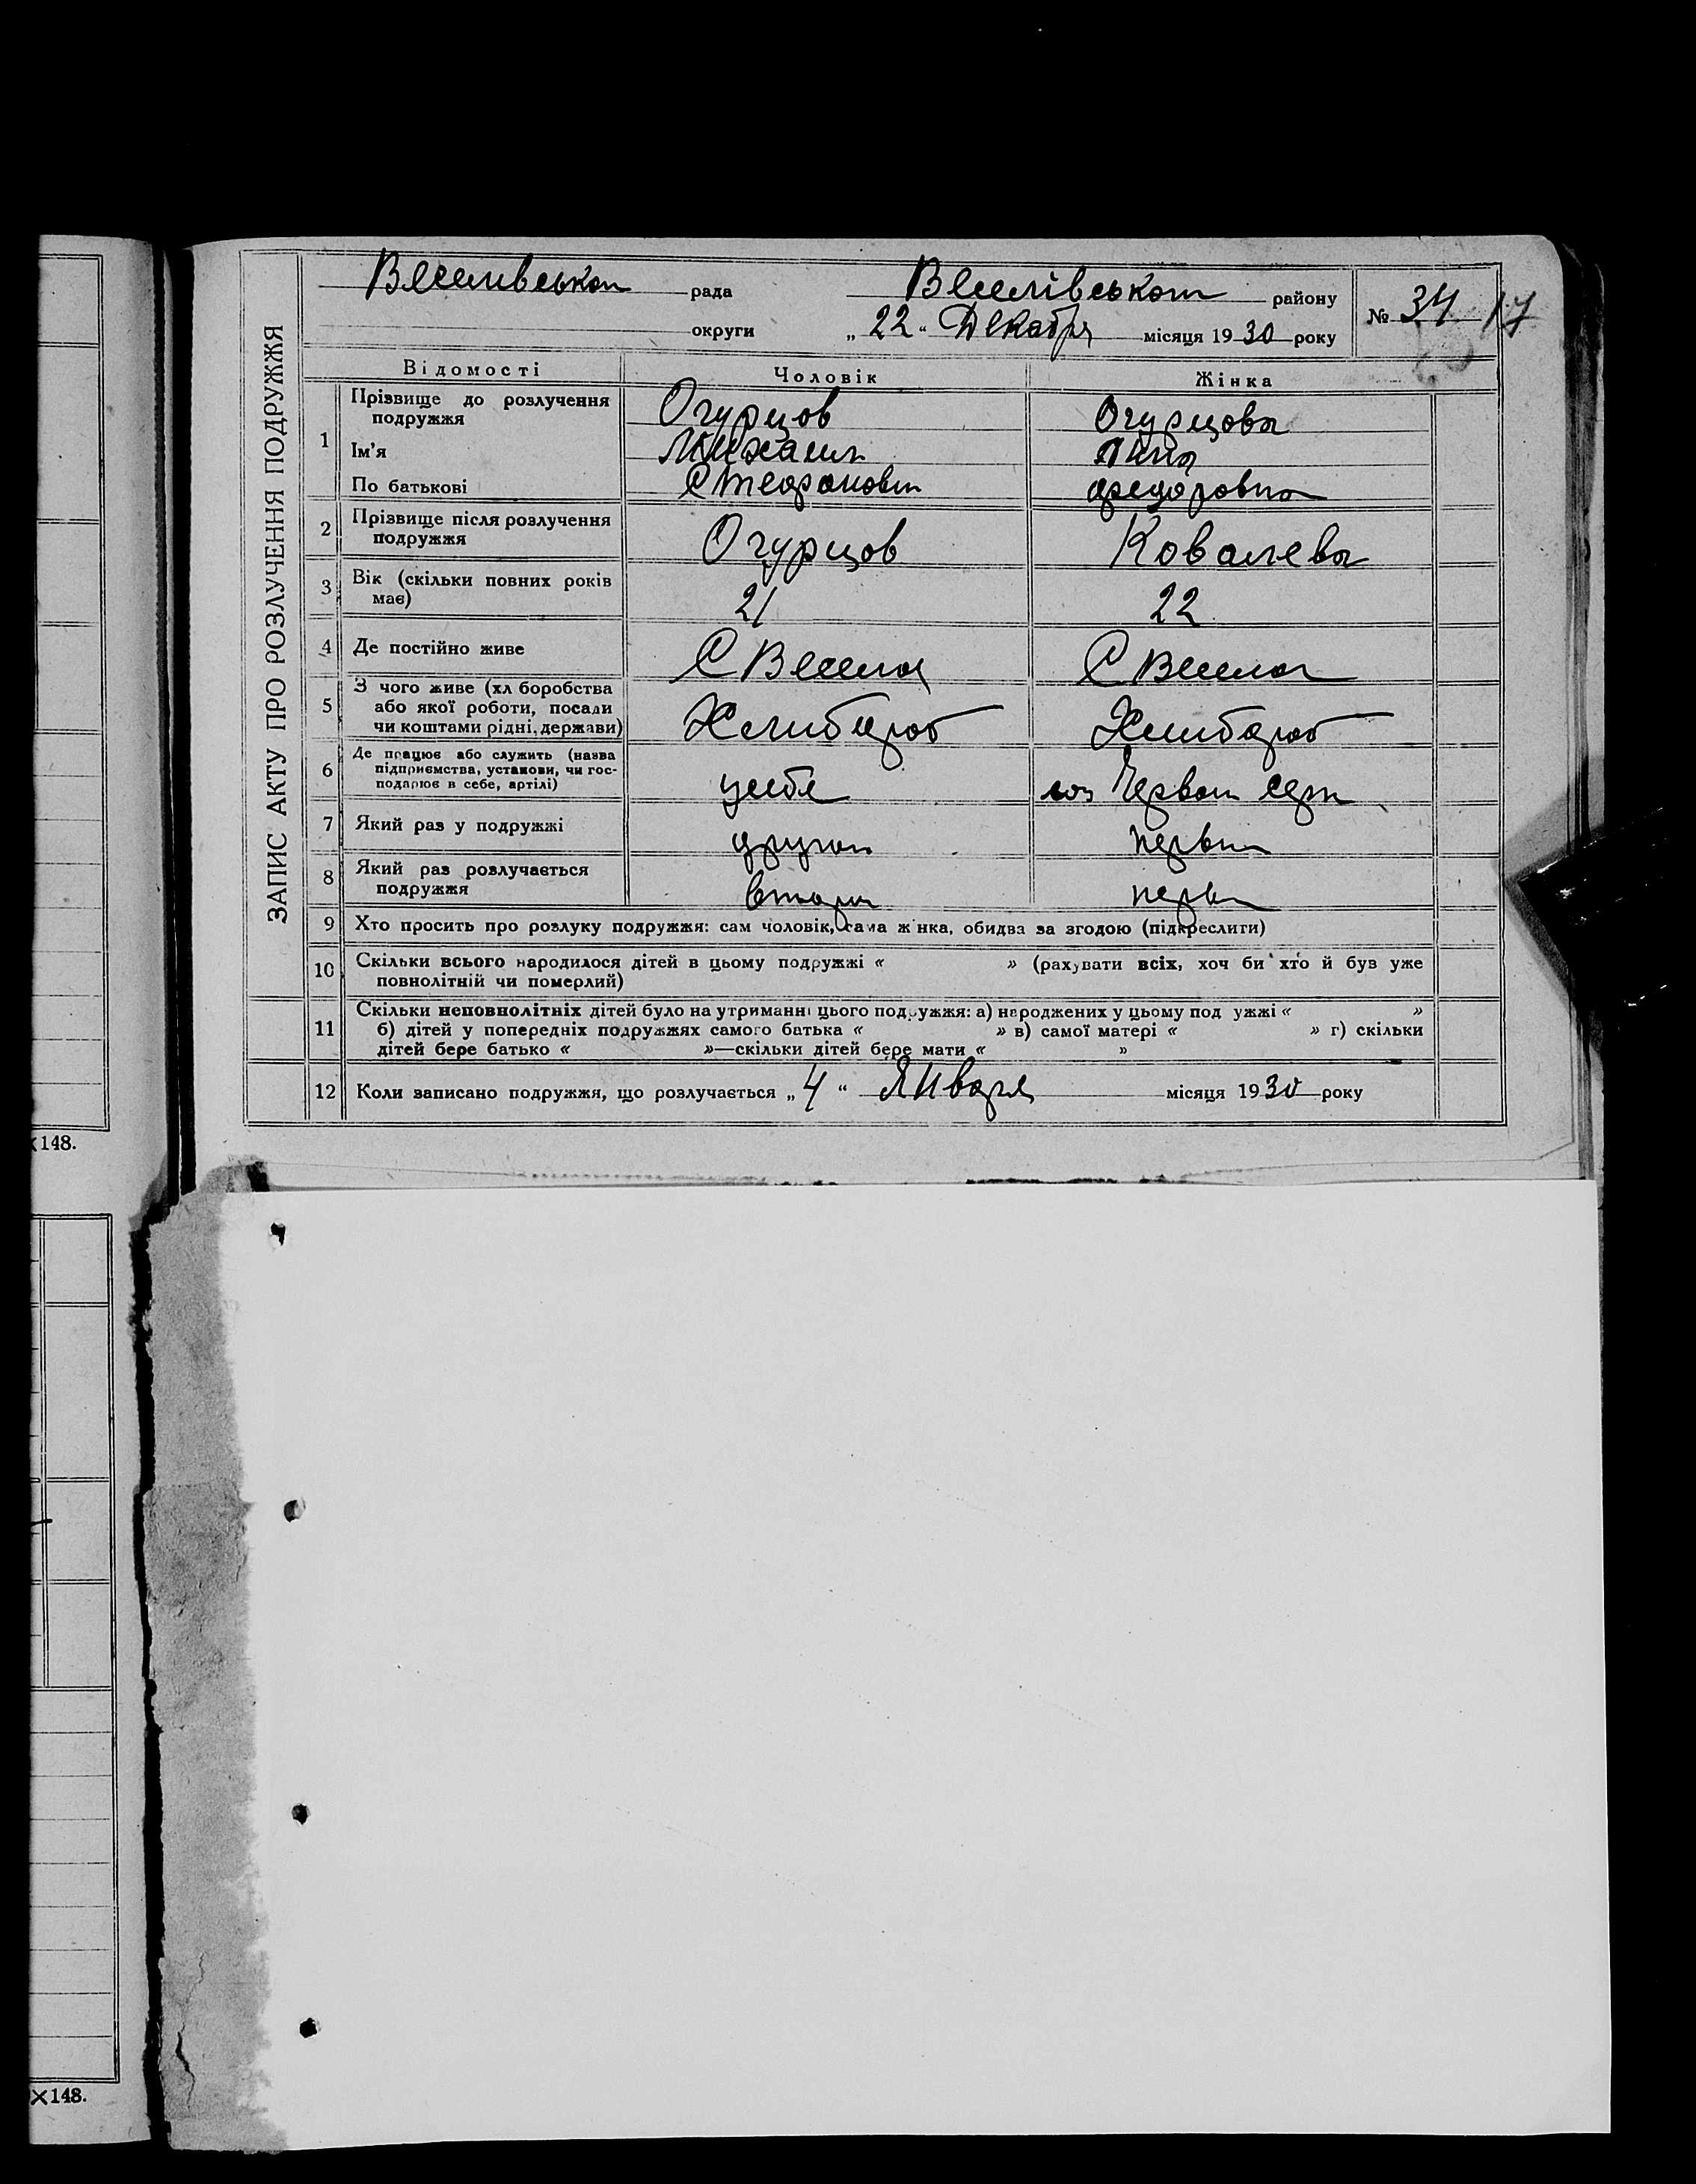 ЗАПИС АКТУ ПРО РОЗЛУЧЕННЯ ПОДРУЖЖЯ
рада района району
округи „ 22 “ Декабря місяця 1930 року
№ 34 17
Відомості Чоловік Жінка
1 Прізвище до розлучення подружжя Огурцов Огурцова
Ім'я Михаил
По батькові Федоровна
2 Прізвище після розлучення подружжя Огурцов Ковалева
3 Вік (скільки повних років має) 21 22
4 Де постійно живе С Весела С Весела
5 З чого живе (хл боробства або якої роботи, посади чи коштами рідні, держави) Хлибороб Хлибороб
6 Де працює або служить (назва підприємства, установи, чи господарює в себе, артілі) усебе
7 Який раз у подружжі
8 Який раз розлучається подружжя
9 Хто просить про розлуку подружжя: сам чоловік, сама жінка, обидва за згодою (підкреслити)
10 Скільки всього народилося дітей в цьому подружжі « » (рахувати всіх, хоч би хто й був уже
повнолітній чи померлий)
11 Скільки неповнолітніх дітей було на утриманні цього подружжя: а) народжених у цьому под ужжі « »
б) дітей у попередніх подружжях самого батька « » в) самої матері « » г) скільки
дітей бере батько « »—скільки дітей бере мати « »
12 Коли записано подружжя, що розлучається „ 4 “ Января місяця 1930 року
×148.
×148.